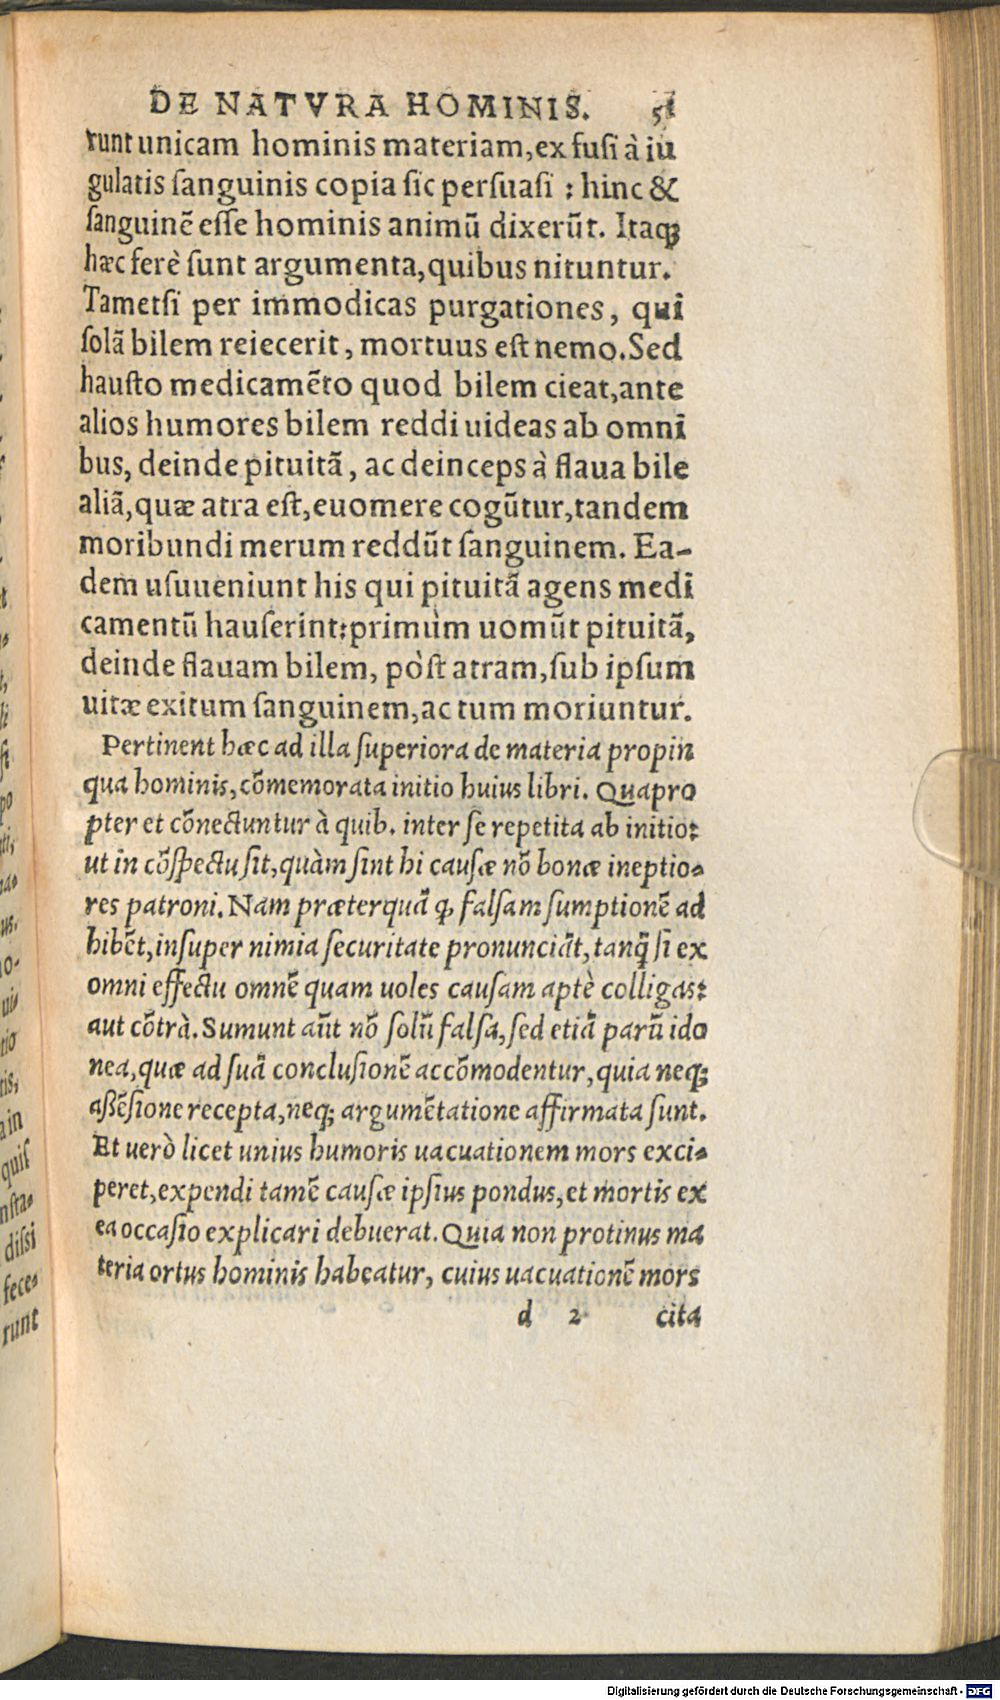 DE NATVRA HOMINIS. 51
runt unicam hominis materiam, ex fusi à iu
gulatis sanguinis copia sic persuasi : hinc &
sanguinē esse hominis animū dixerūt. Itaqꝫ
hæc ferè sunt argumenta, quibus nituntur.
Tametsi per immodicas purgationes, qui
solā bilem reiecerit, mortuus est nemo. Sed
hausto medicamēto quod bilem cieat, ante
alios humores bilem reddi uideas ab omni
bus, deinde pituitā, ac deinceps à flaua bile
aliā, quæ atra est, euomere cogūtur, tandem
moribundi merum reddūt sanguinem. Ea-
dem usuueniunt his qui pituitā agens medi
camentū hauserint: primùm uomūt pituitā,
deinde flauam bilem, pòst atram, sub ipsum
uitæ exitum sanguinem, ac tum moriuntur.
Pertinent hæc ad illa superiora de materia propin
qua hominis, cōmemorata initio huius libri. Quapro
pter et cōnectuntur à quib. inter se repetita ab initio:
ut in cōspectu sit, quàm sint hi causæ nō bonæ ineptio-
res patroni. Nam præterquā ꝙ falsam sumptionē ad
hibēt, insuper nimia securitate pronunciāt, tanq̃ si ex
omni effectu omnē quam uoles causam aptè colligas:
aut cōtrà. Sumunt aūt nō solū falsa, sed etiā parū ido
nea, quæ ad suā conclusionē accōmodentur, quia neqꝫ
aßēsione recepta, neqꝫ argumētatione affirmata sunt.
Et uerò licet unius humoris uacuationem mors exci-
peret, expendi tamē causæ ipsius pondus, et mortis ex
ea occasio explicari debuerat. Quia non protinus ma
teria ortus hominis habeatur, cuius uacuationē mors
d 2 cita
Digitalisierung gefördert durch die Deutsche Forschungsgemeinschaft - DFG